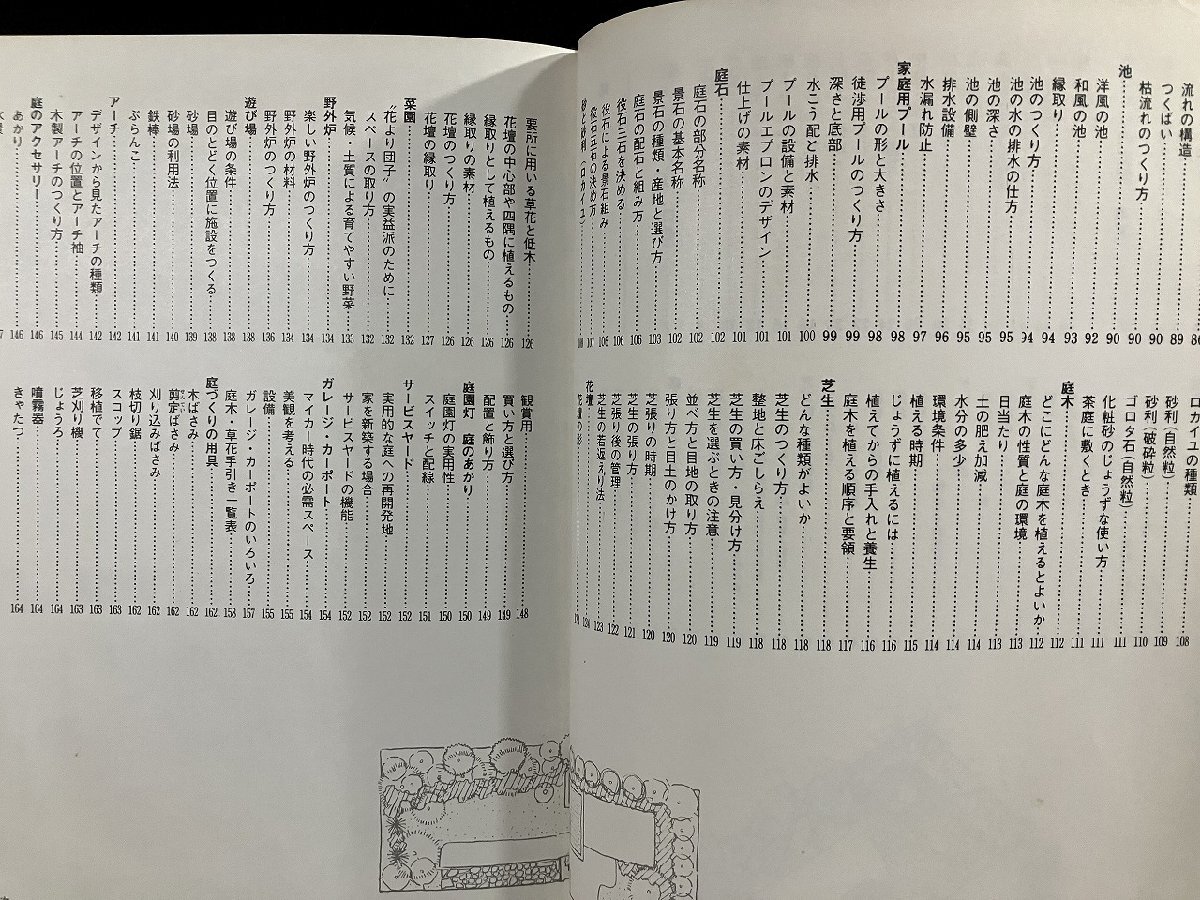 流れの構造……86
つくばい……89
枯流れのつくり方……90
池……90
洋風の池……90
和風の池……92
縁取り……93
池のつくり方……94
池の水の排水の仕方……95
池の深さ……95
池の側壁……95
排水設備……96
水漏れ防止……97
家庭用プール……98
プールの形と大きさ……98
徒渉用プールのつくり方……99
深さと底部……99
水こう配と排水……100
プールの設備と素材……101
プールエプロンのデザイン……101
仕上げの素材……101
庭石……102
庭石の部分名称……102
景石の基本名称……102
景石の種類・産地と選び方……103
庭石の配石と組み方……106
役石三石を決める……106
役石による景石組み……106
役石五石の決め方……107
砂と砂利（ロカイユ）……108
ロカイユの種類……108
砂利（自然粒）……109
砂利（破砕粒）……110
ゴロタ石（自然粒）……111
化粧砂のじょうずな使い方……111
茶庭に敷くとき……111
庭木……112
どこにどんな庭木を植えるとよいか……112
庭木の性質と庭の環境……113
日当たり……113
土の肥え加減……114
水分の多少……114
環境条件……114
植える時期……115
じょうずに植えるには……116
植えてからの手入れと養生……116
庭木を植える順序と要領……117
芝生……118
どんな種類がよいか……118
芝生のつくり方……118
整地と床ごしらえ……118
芝生の買い方・見分け方……119
芝生を選ぶときの注意……119
並べ方と目地の取り方……120
張り方と目土のかけ方……120
芝張りの時期……120
芝生の張り方……121
芝張り後の管理……122
芝生の若返え り法……123
花壇……124
要所に用いる草花と低木……126
花壇の中心部や四隅に植えるもの……126
縁取りとして植えるもの……126
縁取りの素材……126
花壇のつくり方……126
花壇の縁取り……137
菜園……132
“花より団子”の実益派のために……132
スペースの取り方……132
気候・土質による育てやすい野菜……133
野外炉……134
楽しい野外炉のつくり方……134
野外炉の材料……134
野外炉のつくり方……136
遊び場……138
遊び場の条件……138
目のとどく位置に施設をつくる……138
砂場……139
砂場の利用法……140
鉄棒……141
ぶらんこ……141
アーチ……142
デザインから見たアーチの種類……142
アーチの位置とアーチ袖……144
木製アーチのつくり方……145
庭のアクセサリー……146
あかり……146
観賞用……148
買い方と選び方……149
配置と飾り方……149
庭園灯　庭のあかり……150
庭園灯の実用性……150
スイッチと配線……151
サービスヤード……152
実用的な庭への再開発地……152
家を新築する場合……152
サービスヤードの機能……152
ガレージ・カーポート……154
マイカー時代の必需スペース……154
美観を考える……155
設備……155
ガレージ・カーポートのいろいろ……157
庭木・草花手引き一覧表……158
庭づくりの用具……162
木ばさみ……162
剪定ばさみ……162
刈り込みばさみ……162
枝切り鋸……162
スコップ……163
移植ごて……163
芝刈り機……163
じょうろ……164
噴霧器……164
きゃたつ……164